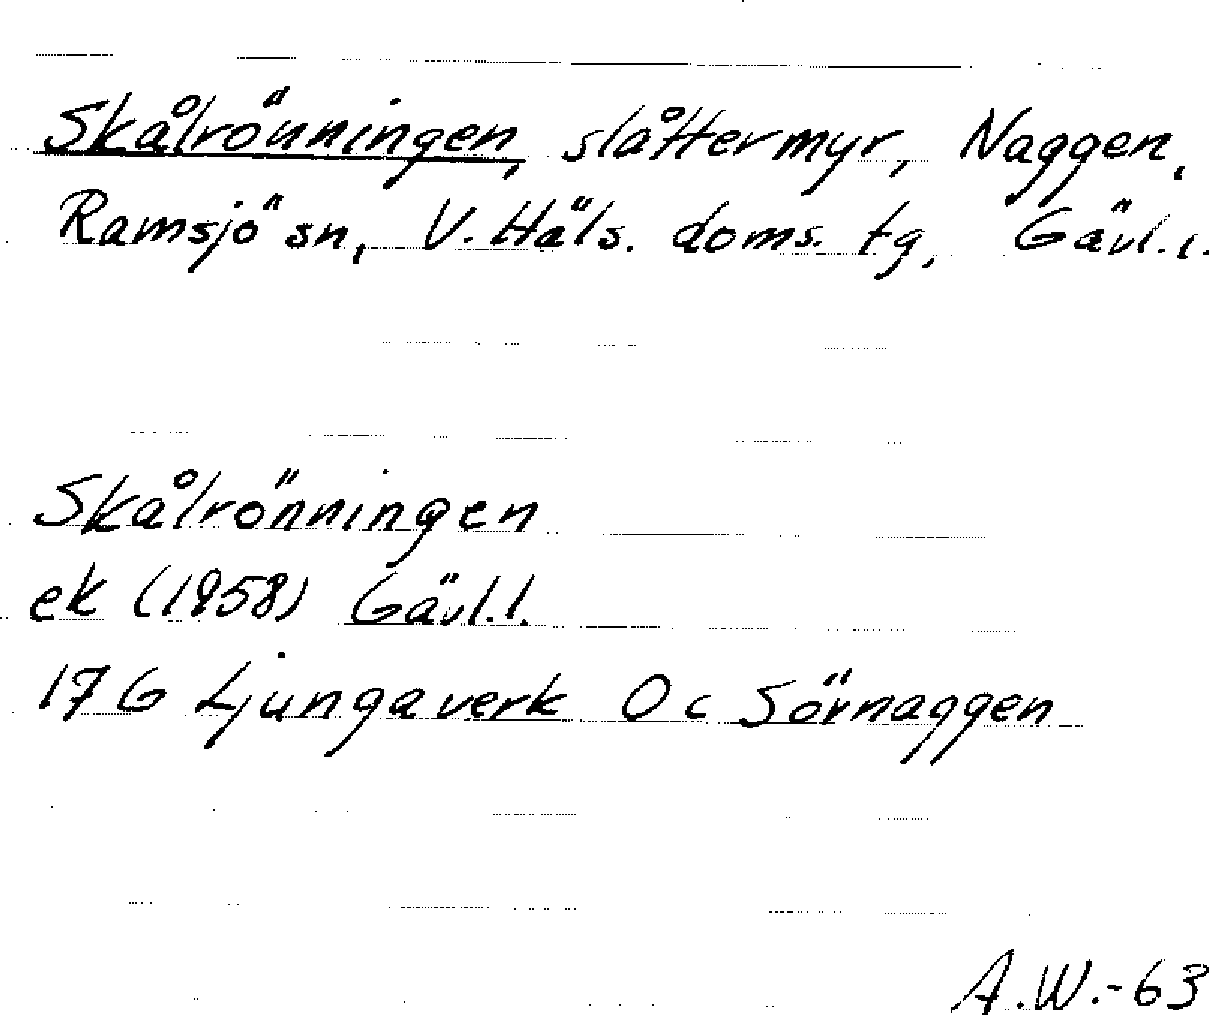 Skålrönningen, slåttermyr, Naggen,
Ramsjö sn, V. Häls. doms. tg, Gävl. l.
Skålrönningen
ek (1958) Gävl. l.
17 G Ljungaverk 0c Sörnaggen
A.W.-63